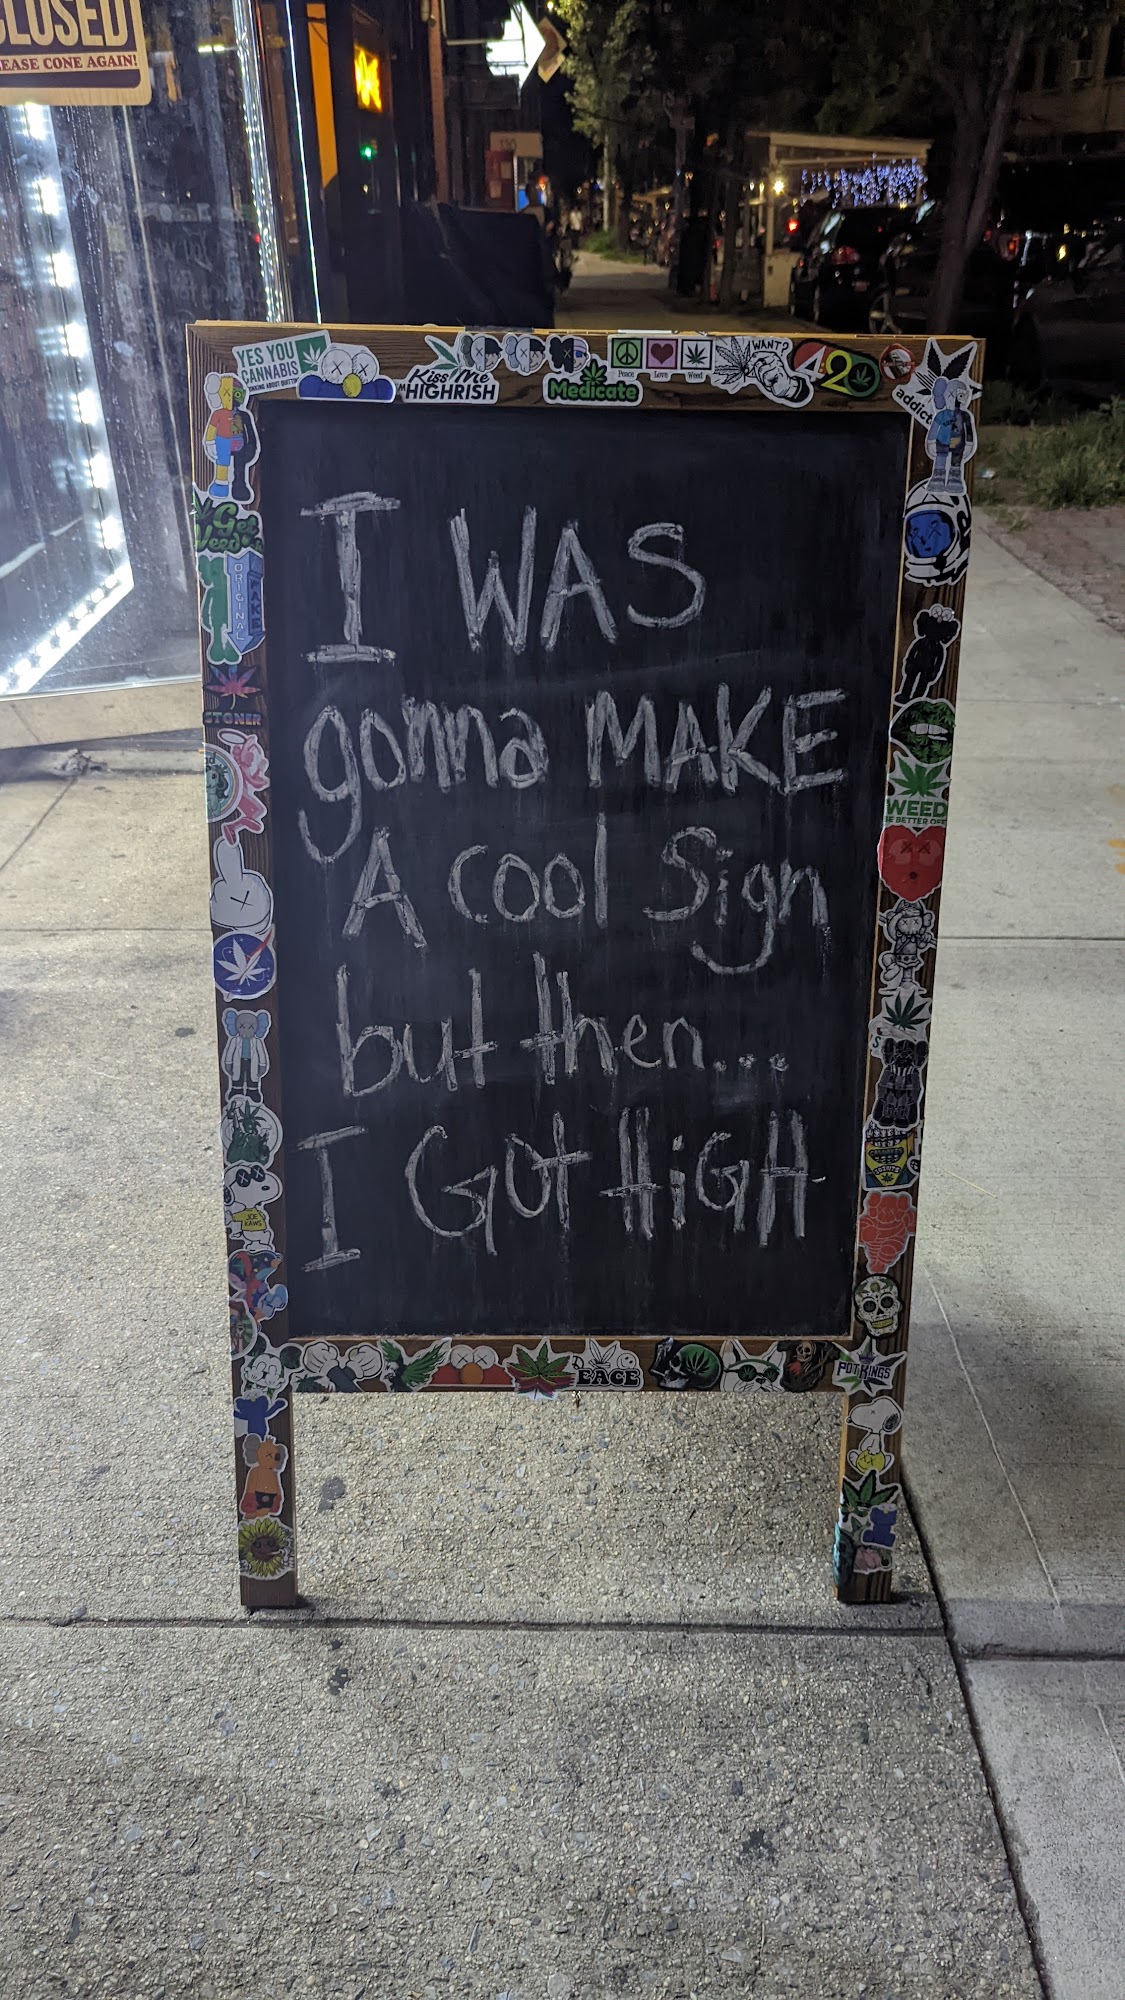 CLOSED
EASE CONE AGAIN!
YES YOU
CANNABIS
Kiss Me
HIGHRISH
Medicate
Peace Love Weed
WANT?
420
addict
Get
Weed
ORIGINAL
FAKE
STONER
WEED
BE BETTER OFF
I WAS
gonna MAKE
A cool Sign
but then...
I GOt HiGH
JOE
KAWS
PEACE
POTKINGS